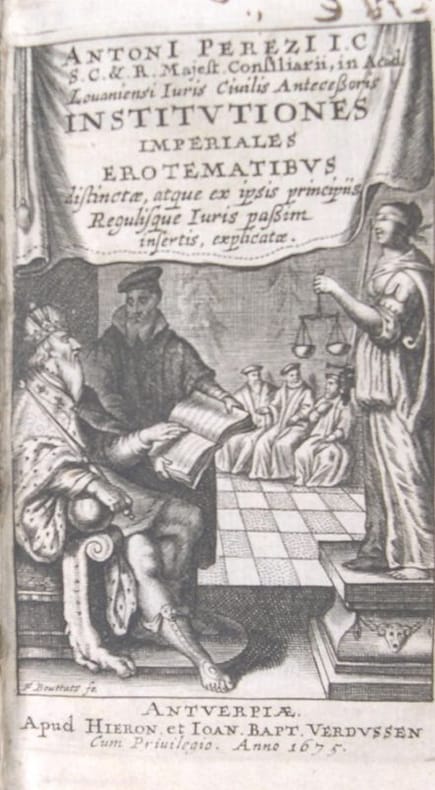 ANTONI PEREZI I.C
S.C. & R. Majest. Consiliarii, in Acad.
Louaniensi Iuris Ciuilis Anteceßoris
INSTITVTIONES
IMPERIALES
EROTEMATIBVS
distinctæ, atque ex ipsis principiis
Regulisque Iuris paßim
insertis, explicatæ.
F. Bouttats fe.
ANTVERPIÆ.
Apud HIERON. et IOAN. BAPT. VERDVSSEN
Cum Priuilegio. Anno 1675.